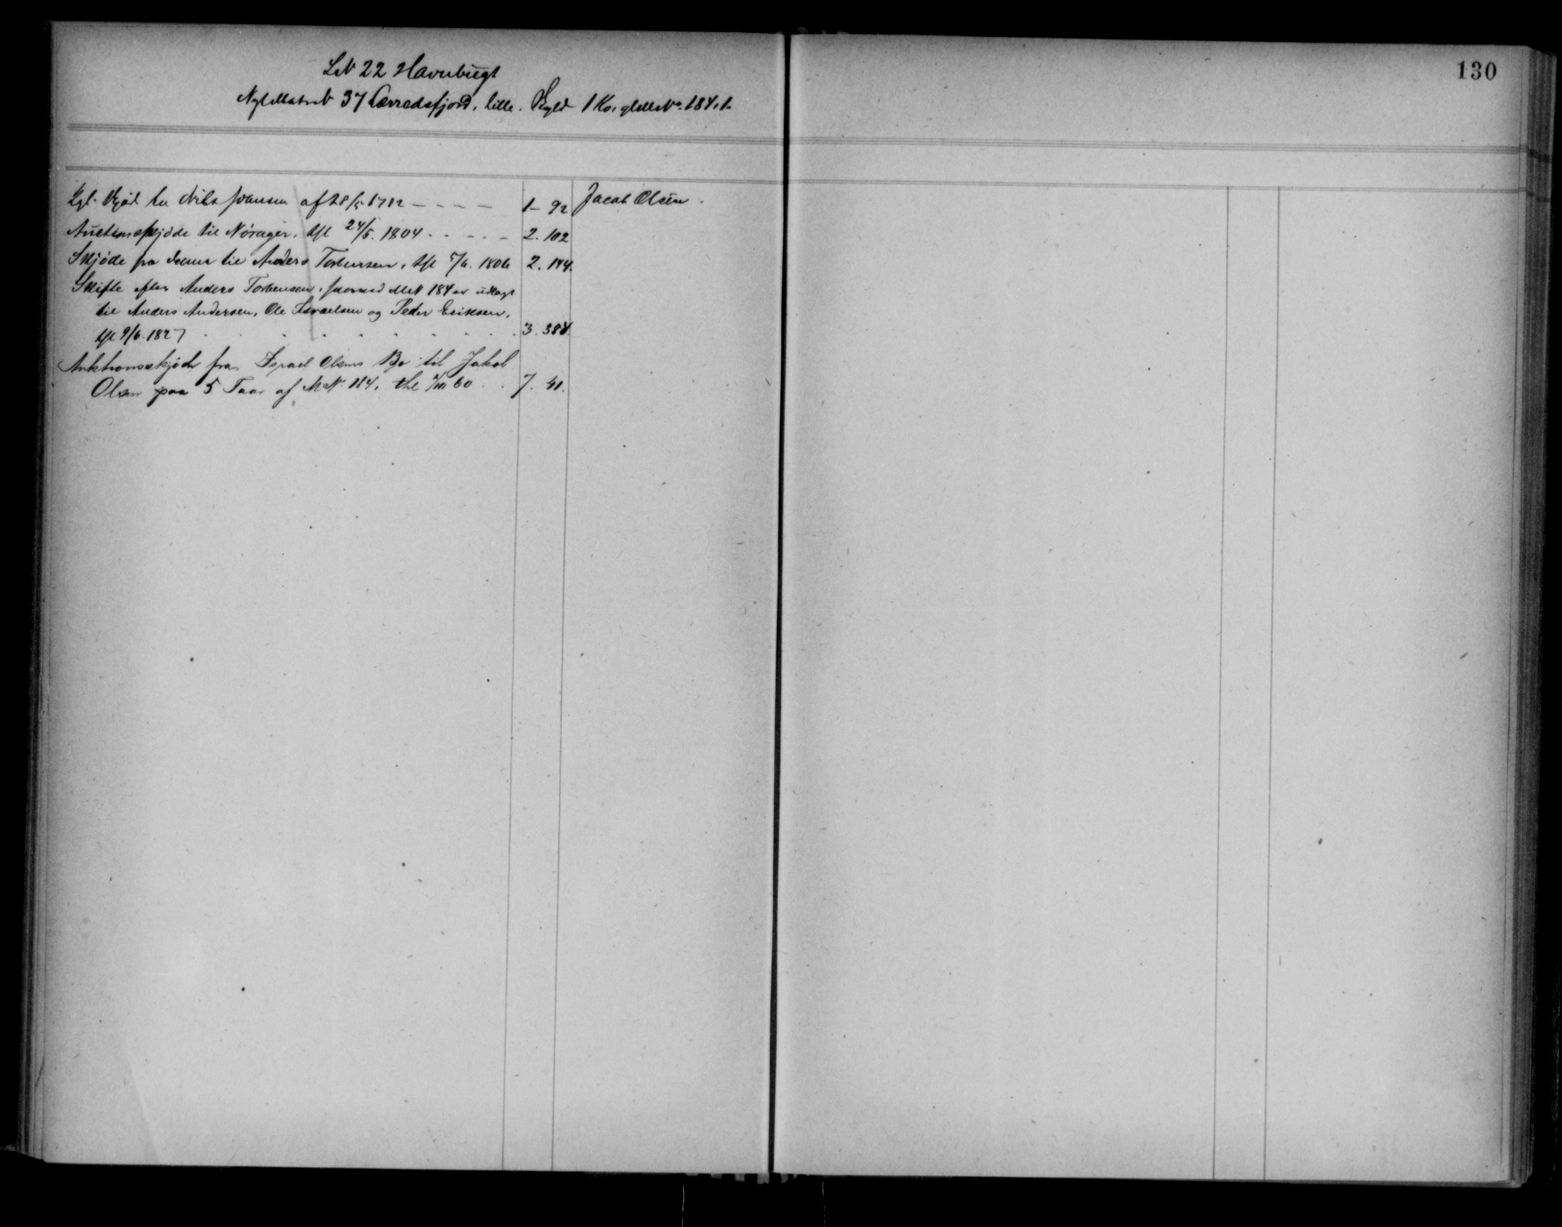 130
LN 22 Havnbugt
Ny Matr N 37 Lerredsfjord, lille. Skyld 1 Ko, gl. M No 184, 1.
Kgl. Skjöde til Nils Hansen af 28/5 1782 - - - - 1 - 92 Jacob Olsen.
Auctionsskjöde til Nörager, thl 24/5. 1804 . . . . 2. 102
Skjöde fra denne til Anders Torbensen, thl 7/6. 1806 2. 144.
Skifte efter Anders Torbensen, hvorved M N 184 er udlagt
til Anders Andersen, Ole Israelsen og Peder Eriksen,
thl 9/6. 1827 . . . . . . 3. 384
Auktionsskjöde fra Israel Olsens Bo til Jakob
Olsen paa 5 Taar af M N. 114, thl 60 . . 7. 41.